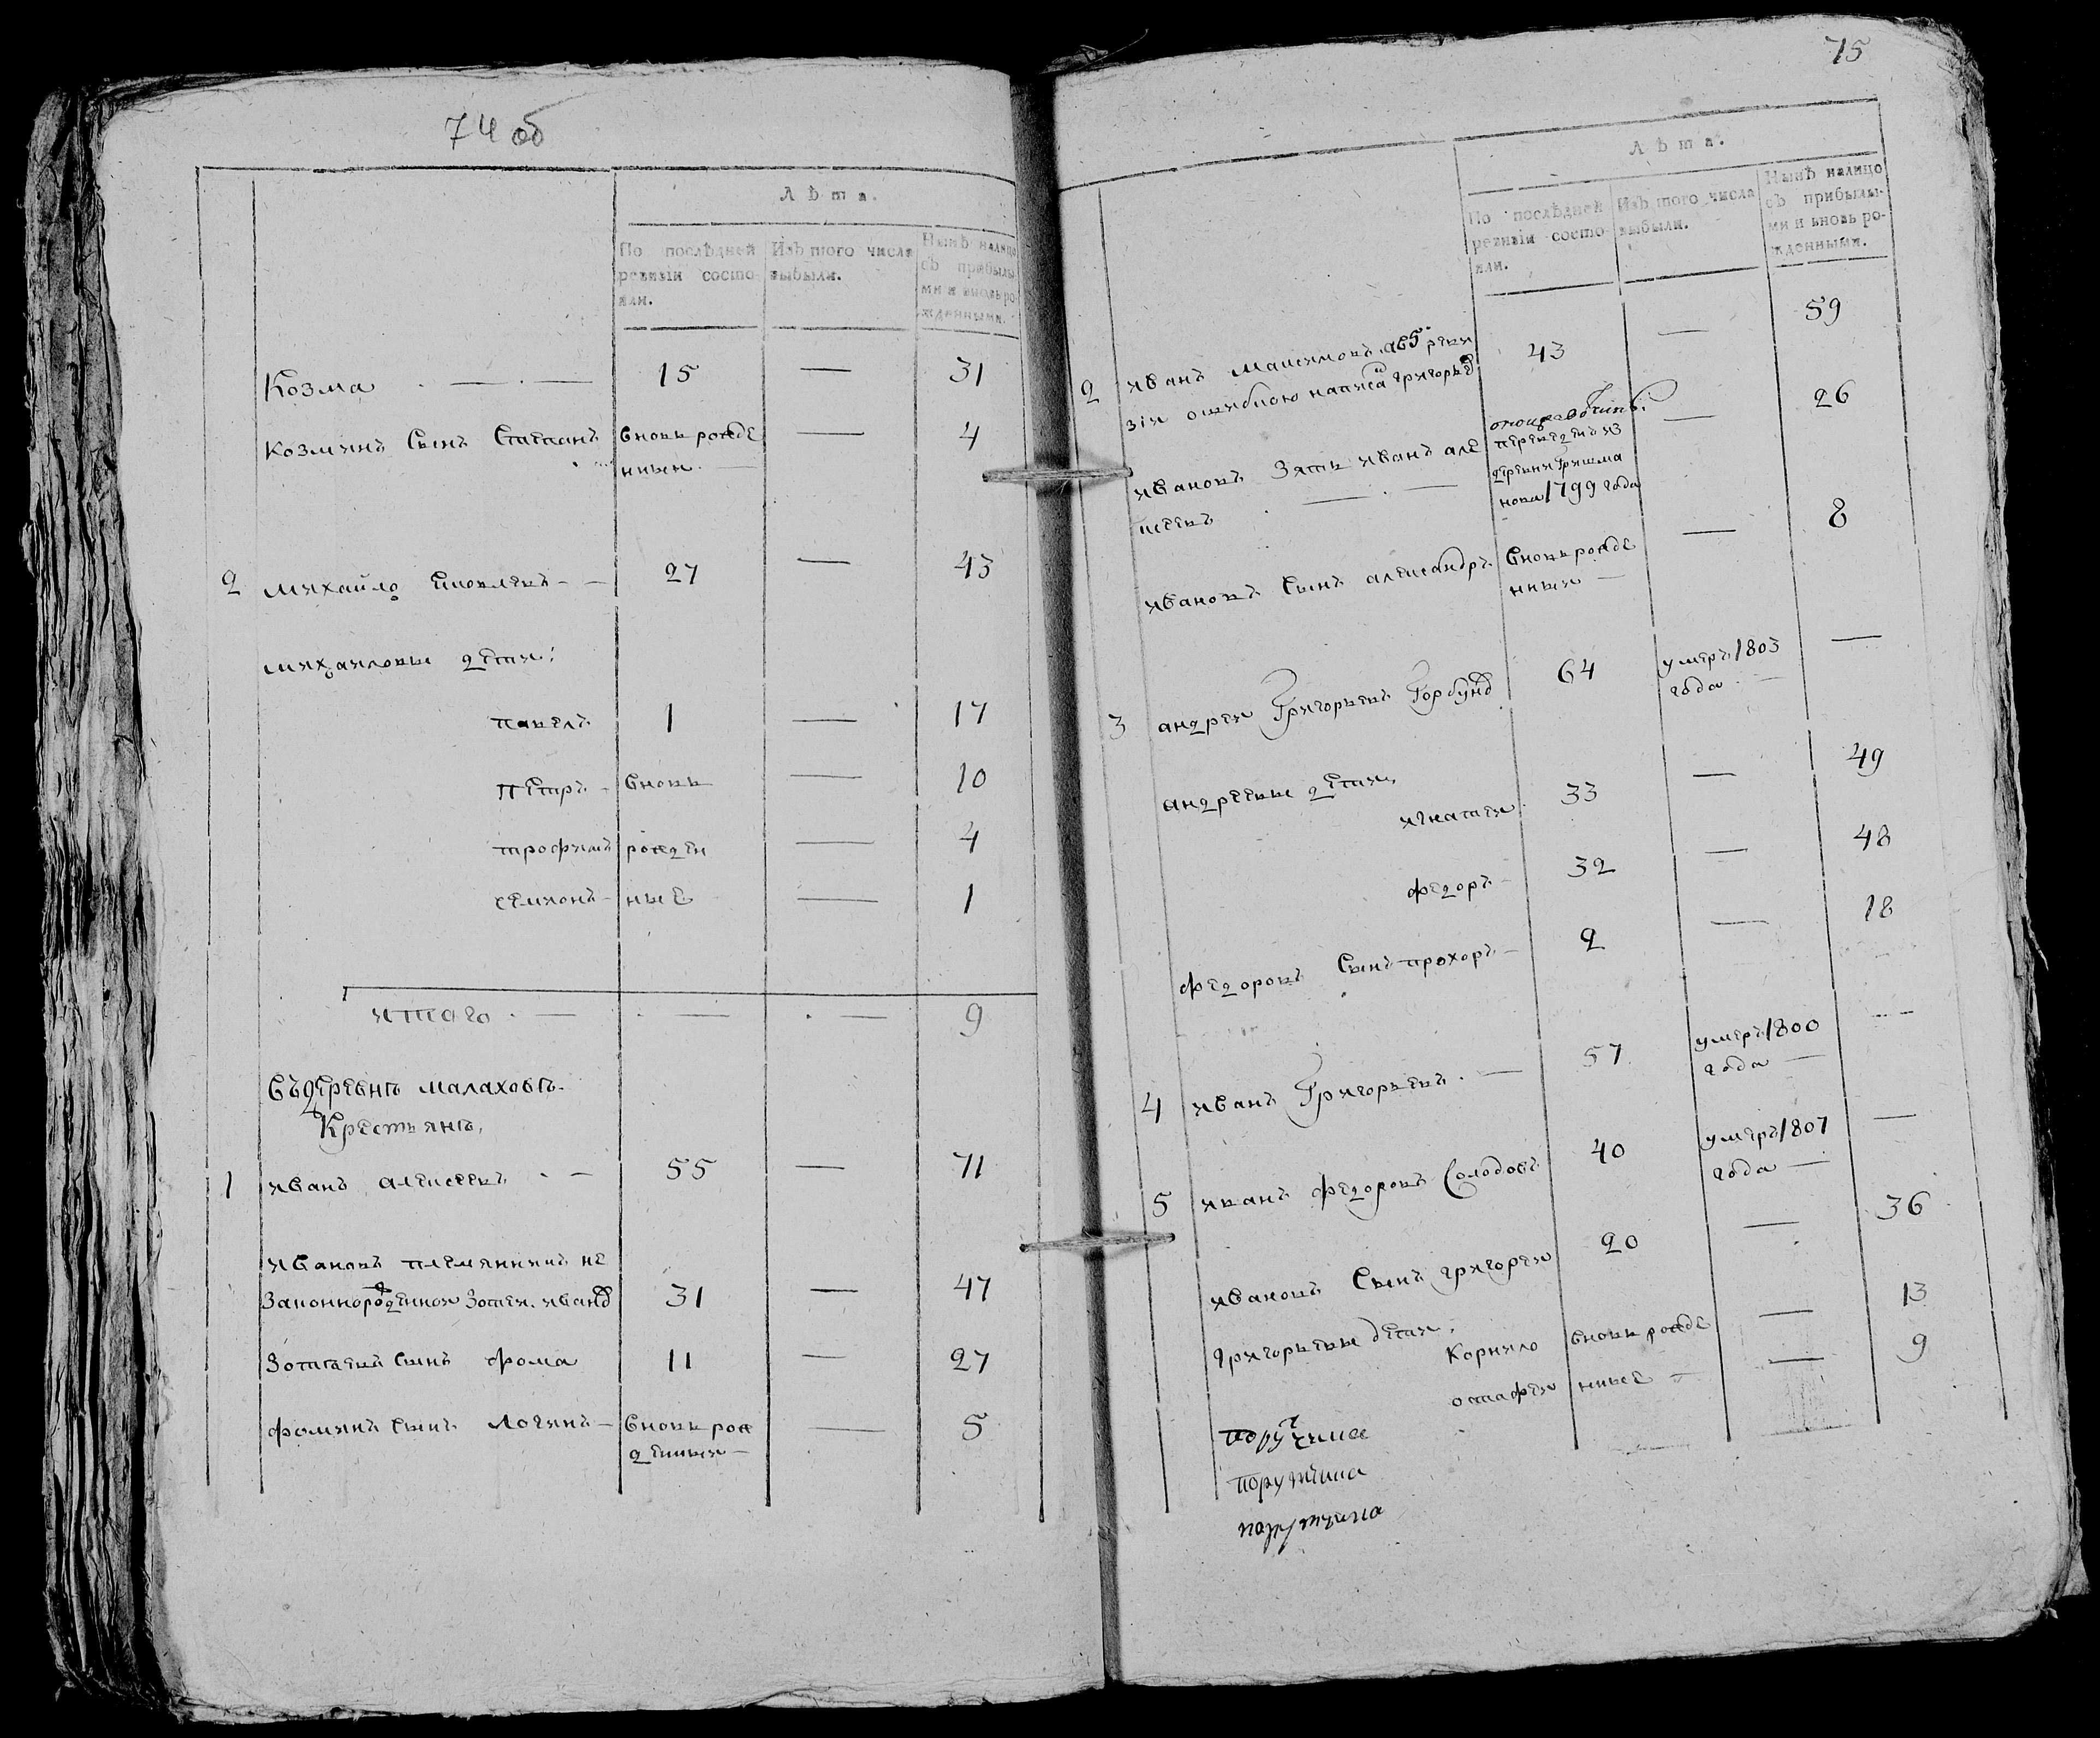 74 об
Лѣта.
По послѣдней ревизіи состояли.
Изъ того числа выбыли.
Нынѣ налицо съ прибылыми и вновь рожденными.
Козма — 15 — 31
Козминъ Сынъ Степанъ вновь рожде — 4
нныи
2 михайло яковлевъ — 27 — 43
михаиловы дети:
павелъ 1 — 17
петръ — вновь — 10
трофимъ рожден — 4
семионъ — ные — 1
итого — — — 9
въ деревне малаховѣ
Крестьянѣ,
1 иванъ алексеевъ — 55 — 71
ивановъ племянникъ не
законнорожденнои Зотеи ивановъ 31 — 47
Зотеевъ Сынъ фома 11 — 27
фоминъ Сынъ логинъ — вновь рож — 5
денныи —
75
Лѣта.
По послѣдней ревизіи состояли.
Изъ того числа выбыли.
Нынѣ налицо съ прибылыми и вновь рожденными.
2 иванъ максимовъ а въ 5 реви 43 — 59
зіи ошибкою написанъ григорьевъ
ивановъ Зять иванъ але переведенъ из — 26
ксеевъ деревни Гришма
нова 1799 года
ивановъ Сынъ александръ вновь рожде — 8
нныи —
3 андреи Григорьевъ Горбуновъ 64 умеръ 1803 —
года —
андреевы дети,
игнатеи 33 — 49
федоръ — 32 — 48
федоровъ Сынъ прохоръ — 2 — 18
4 иванъ Григорьевъ — 57 умеръ 1800 —
года —
5 иванъ федоровъ Солодовъ 40 умеръ 1807 —
года —
ивановъ Сынъ григореи 20 — 36
григорьевы дети,
Корнило вновь рожде — 13
остафеи нные — — 9